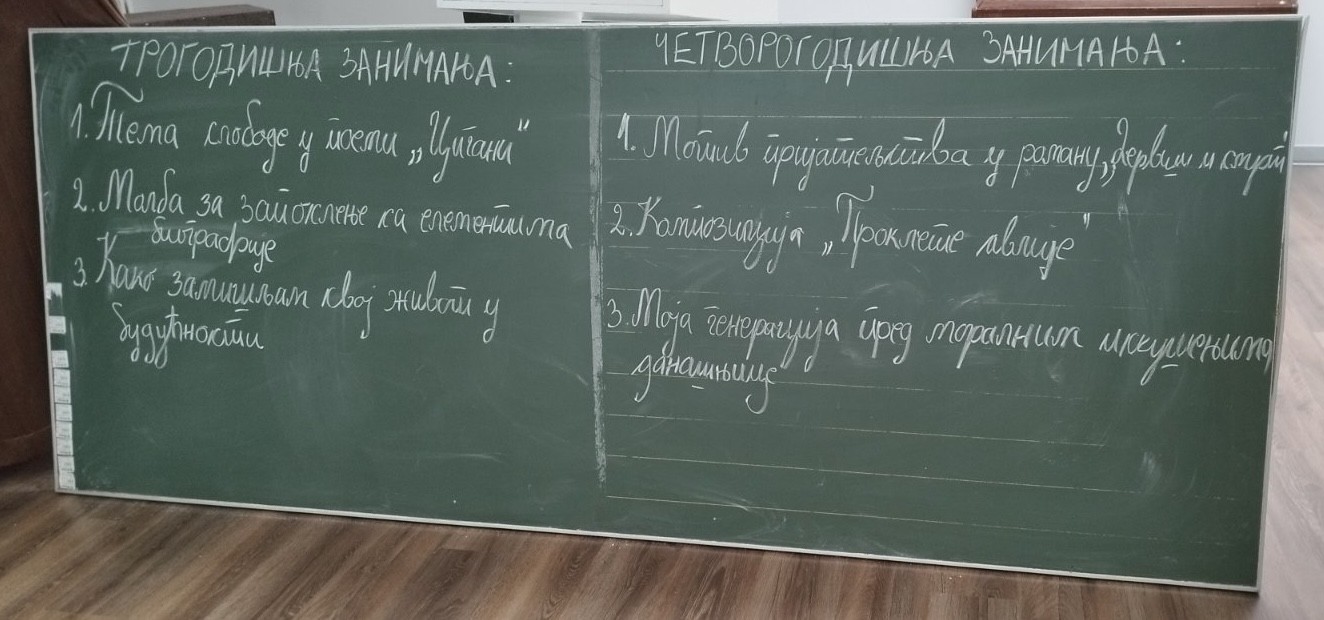 ТРОГОДИШЊА ЗАНИМАЊА:
1. Тема слободе у поеми „Цигани“
2. Молба за запослење са елементима
биографије
3. Како замишљам свој живот у
будућности
ЧЕТВОРОГОДИШЊА ЗАНИМАЊА:
1. Мотив пријатељства у роману „Дервиш и смрт
2. Композиција „Проклете авлије“
3. Моја генерација пред моралним искушењима
данашњице